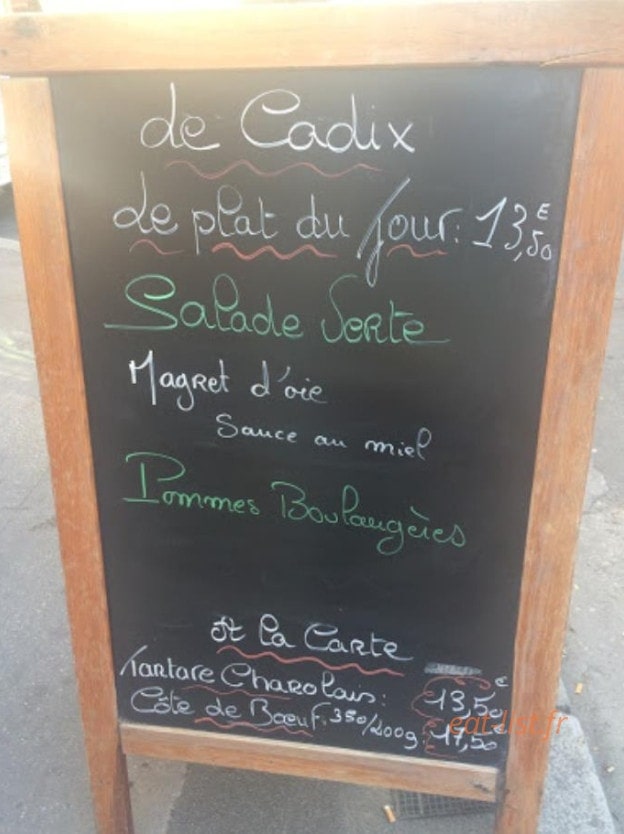 de Cadix
Le plat du jour: 13,50€
Salade Verte
Magret d'oie
Sauce au miel
Pommes Boulangères
A la Carte
Tartare Charolais: 13,50€
Côte de Bœuf: 350/200g 17,50€
eat-list.fr